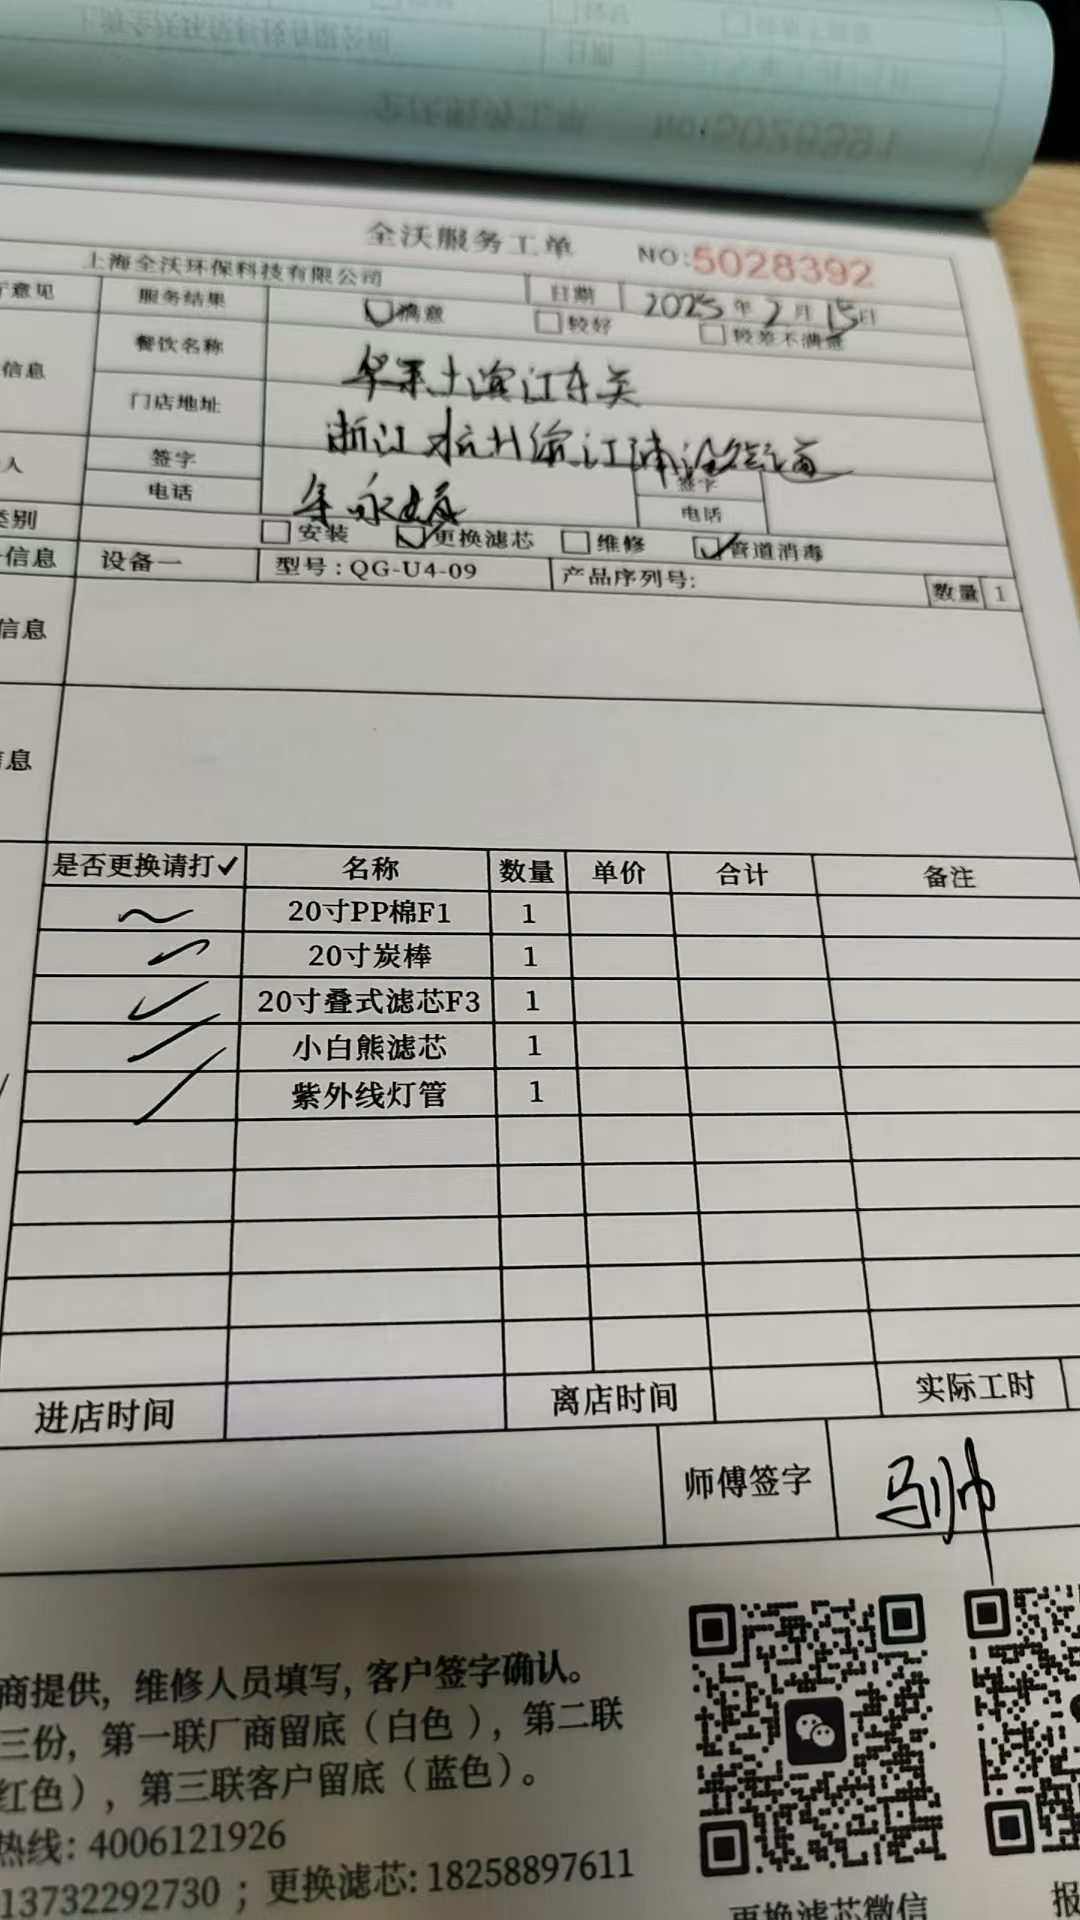 全沃服务工单 NO:5028392
上海全沃环保科技有限公司 日期 2025年2月15日
意见 服务结果 满意 较好 较差不满意
信息 餐饮名称
门店地址 浙江杭州
人 签字 签字
电话 电话
类别 安装 更换滤芯 维修 管道消毒
信息 设备一 型号：QG-U4-09 产品序列号: 数量 1
信息
信息
是否更换请打✓ 名称 数量 单价 合计 备注
20寸PP棉F1 1
20寸炭棒 1
✓ 20寸叠式滤芯F3 1
小白熊滤芯 1
紫外线灯管 1
进店时间 离店时间 实际工时
师傅签字 马帅
商提供，维修人员填写，客户签字确认。
三份，第一联厂商留底（白色），第二联
红色），第三联客户留底（蓝色）。
热线: 4006121926
13732292730；更换滤芯: 18258897611
更换滤芯微信 报